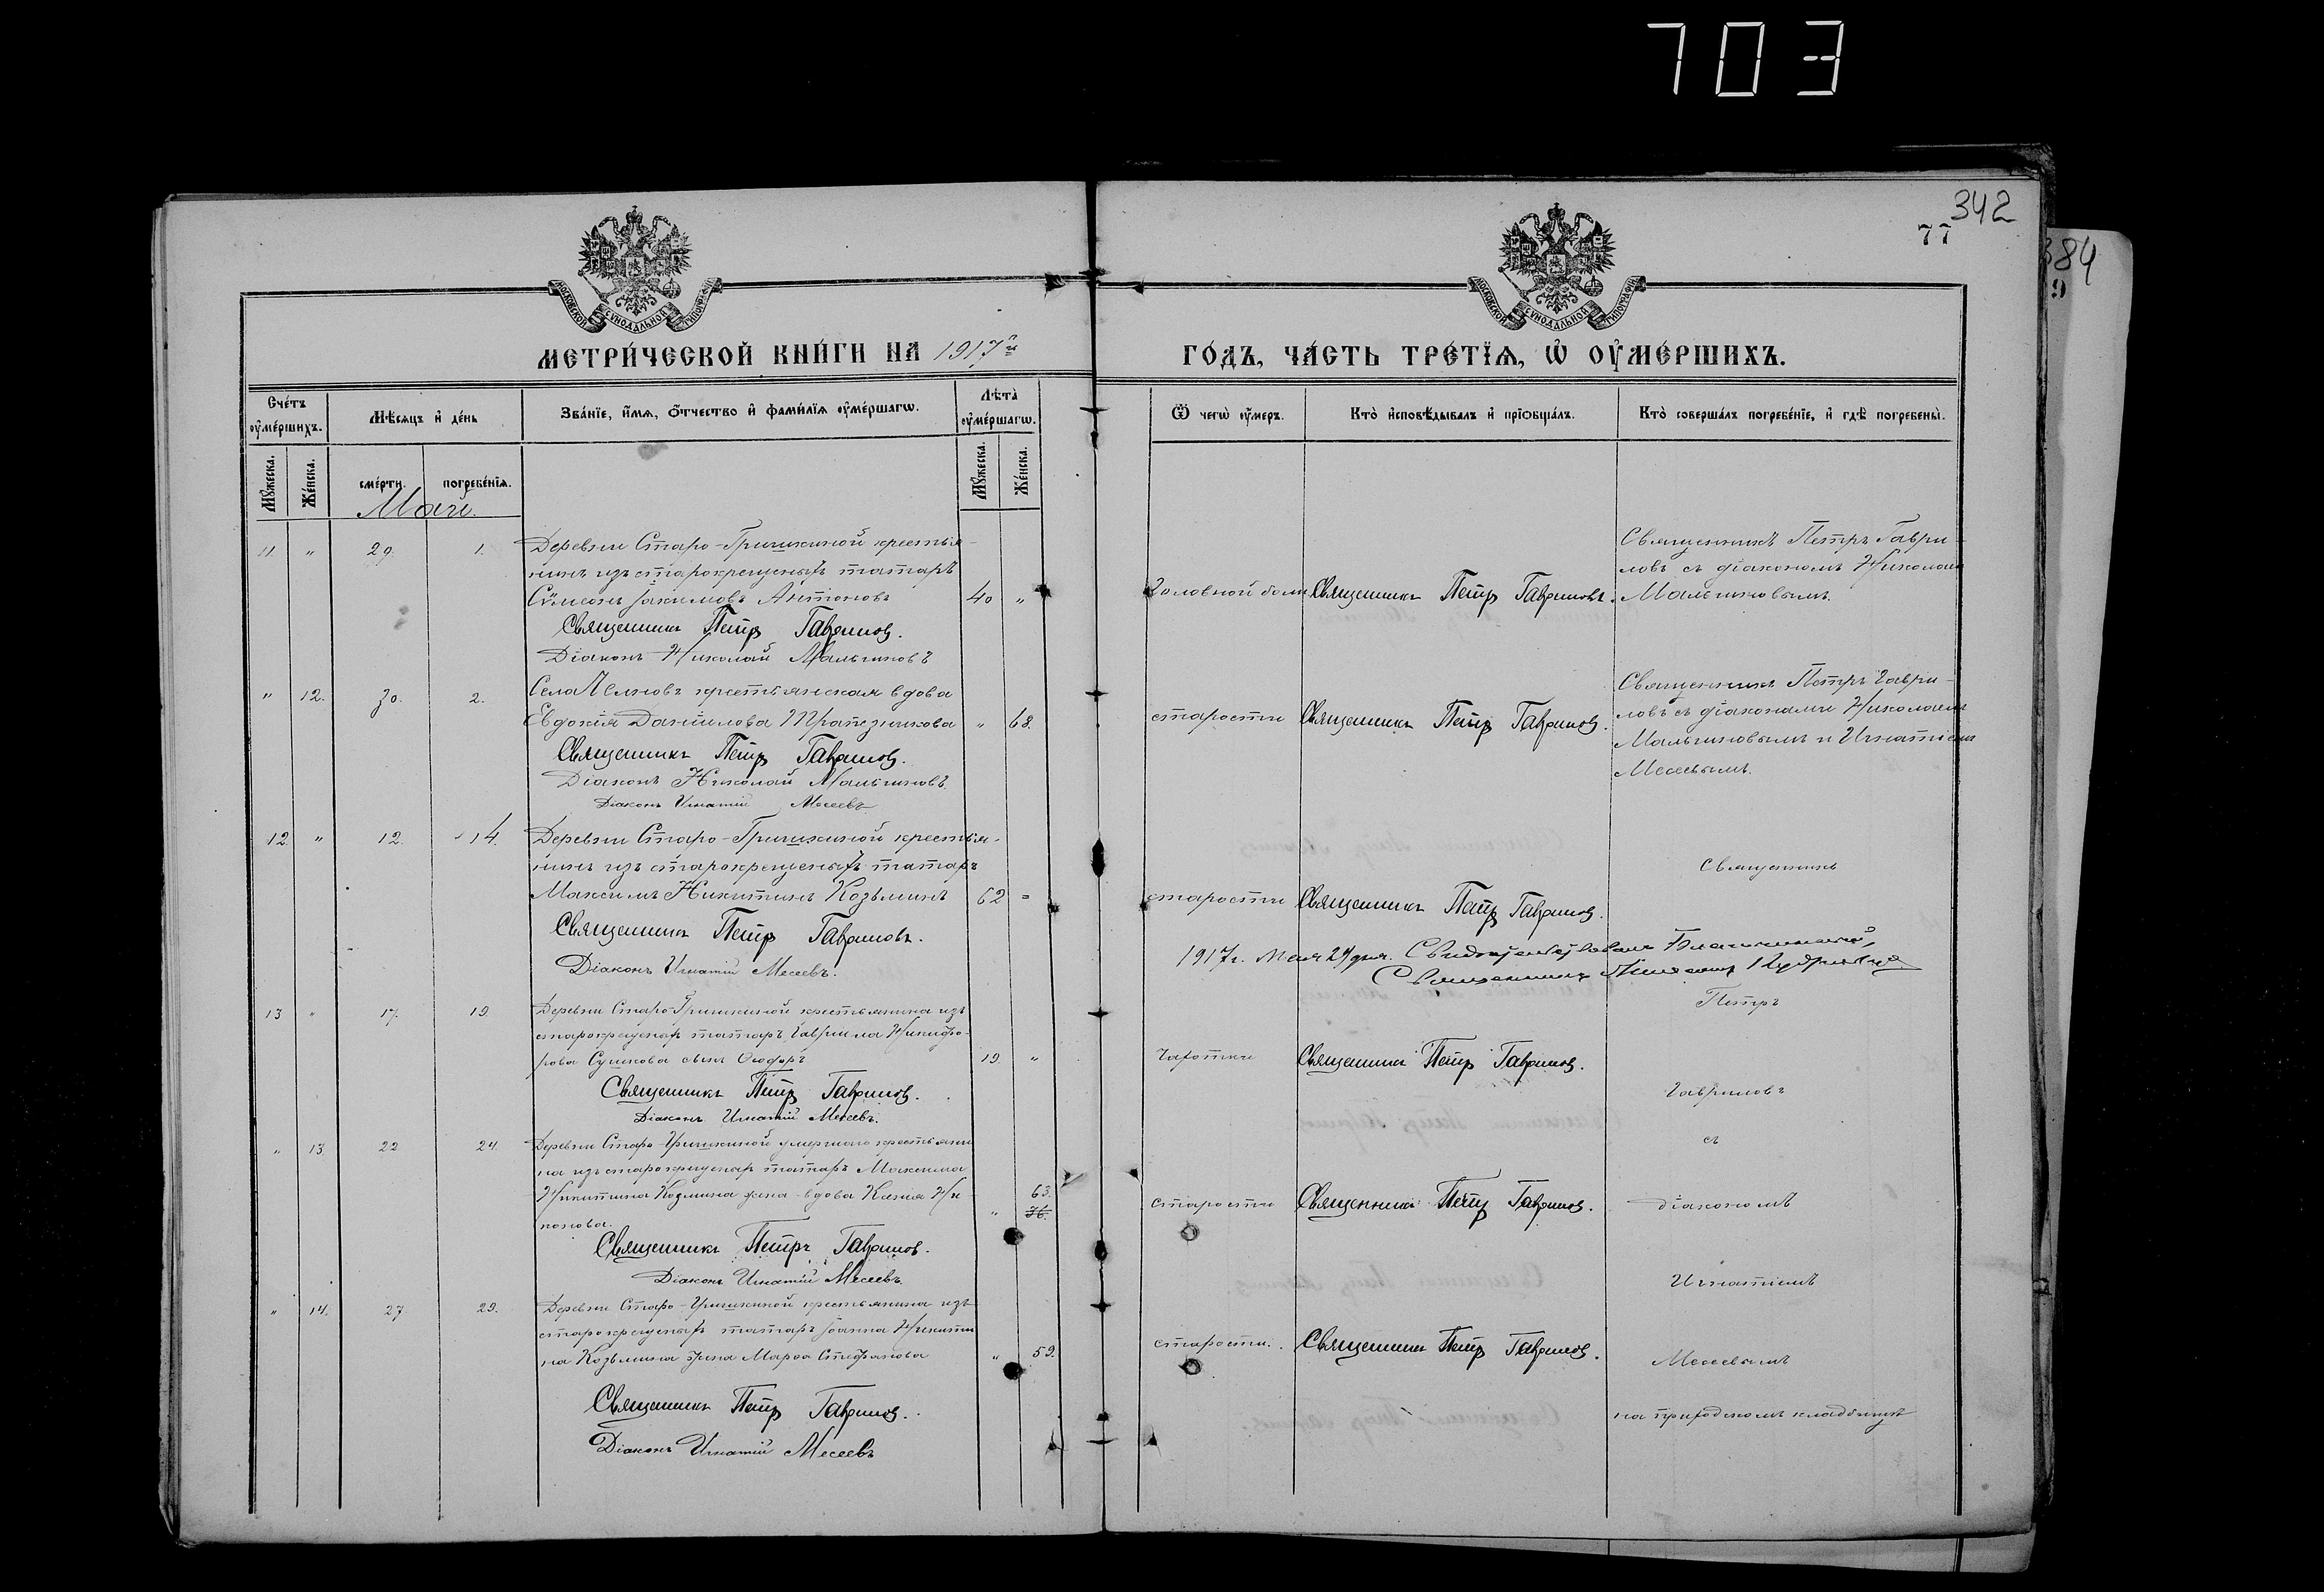 703
342
77
384
9
МОСКОВСКОЙ СѴНОДАЛЬНОЙ ТИПОГРАФІИ
МОСКОВСКОЙ СѴНОДАЛЬНОЙ ТИПОГРАФІИ
МЕТРИ́ЧЕСКОЙ КНИ́ГИ НА 1917й
ГО́ДЪ, ЧА́СТЬ ТРЕ́ТЇѦ, Ѡ҆ ОУ҆МЕ́РШИХЪ.
Сче́тъ оу҆ме́ршихъ.
Мѣ́сѧцъ и҆ де́нь
Зва́нїе, и҆́мѧ, ѻ҆́тчество и҆ фами́лїѧ оу҆ме́ршагѡ.
Лѣ́та оу҆ме́ршагѡ.
Ѿ чегѡ̀ оу҆́меръ.
Кто̀ и҆сповѣ́дывалъ и҆ прїѻбща́лъ.
Кто̀ соверша́лъ погребе́нїе, и҆ гдѣ̀ погребены̀.
Мꙋ́жеска.
Же́нска.
сме́рти.
погребе́нїѧ.
Мꙋ́жеска.
Же́нска.
Май.
11. " 29. 1. Деревни Старо-Гришкиной крестья-
нинъ изъ старокрещеныхъ татаръ
Сѵмеонъ Іакимовъ Антоновъ 40 "
Священникъ Петръ Гавриловъ.
Діаконъ Николай Мальчиковъ
Головной боли Священникъ Петръ Гавриловъ.
Священникъ Петръ Гаври-
ловъ съ діакономъ Николаемъ
Мальчиковымъ.
" 12. 30. 2. Села Челновъ крестьянская вдова
Евдокія Даніилова Трапезникова " 68.
Священникъ Петръ Гавриловъ.
Діаконъ Николай Мальчиковъ
Діаконъ Игнатій Месеевъ
старости Священникъ Петръ Гавриловъ.
Священникъ Петръ Гаври-
ловъ съ діаконами Николаемъ
Мальчиковымъ и Игнатіемъ
Месеевымъ.
12. " 12. 14. Деревни Старо-Гришкиной крестья-
нинъ изъ старокрещеныхъ татаръ
Максимъ Никитинъ Козьминъ 62 =
Священникъ Петръ Гавриловъ.
Діаконъ Игнатій Месеевъ.
старости Священникъ Петръ Гавриловъ.
Священникъ
1917 г. Мая 24 дня. Свидѣтельствовалъ Благочинный,
Священникъ
Петръ
13 " 17. 19. Деревни Старо-Гришкиной крестьянина изъ
старокрещеныхъ татаръ Гавріила Никифо-
рова Сушкова сынъ Ѳеодоръ 19. "
Священникъ Петръ Гавриловъ.
Діаконъ Игнатій Месеевъ.
Чахотки Священникъ Петръ Гавриловъ.
Гавриловъ
съ
" 13. 22 24. Деревни Старо-Гришкиной умершаго крестьяни-
на изъ старокрещеныхъ татаръ Максима
Никитина Козмина жена-вдова Ксенія Ни-
конова. " 63. 76.
Священникъ Петръ Гавриловъ.
Діаконъ Игнатій Месеевъ
старости Священникъ Петръ Гавриловъ.
діакономъ
Игнатіемъ
" 14. 27 29. Деревни Старо-Гришкиной крестьянина изъ
старокрещеныхъ татаръ Іоанна Никити-
на Козьмина жена Марѳа Стефанова " 59.
Священникъ Петръ Гавриловъ.
Діаконъ Игнатій Месеевъ
старости. Священникъ Петръ Гавриловъ.
Месеевымъ
на приходскомъ кладбищѣ